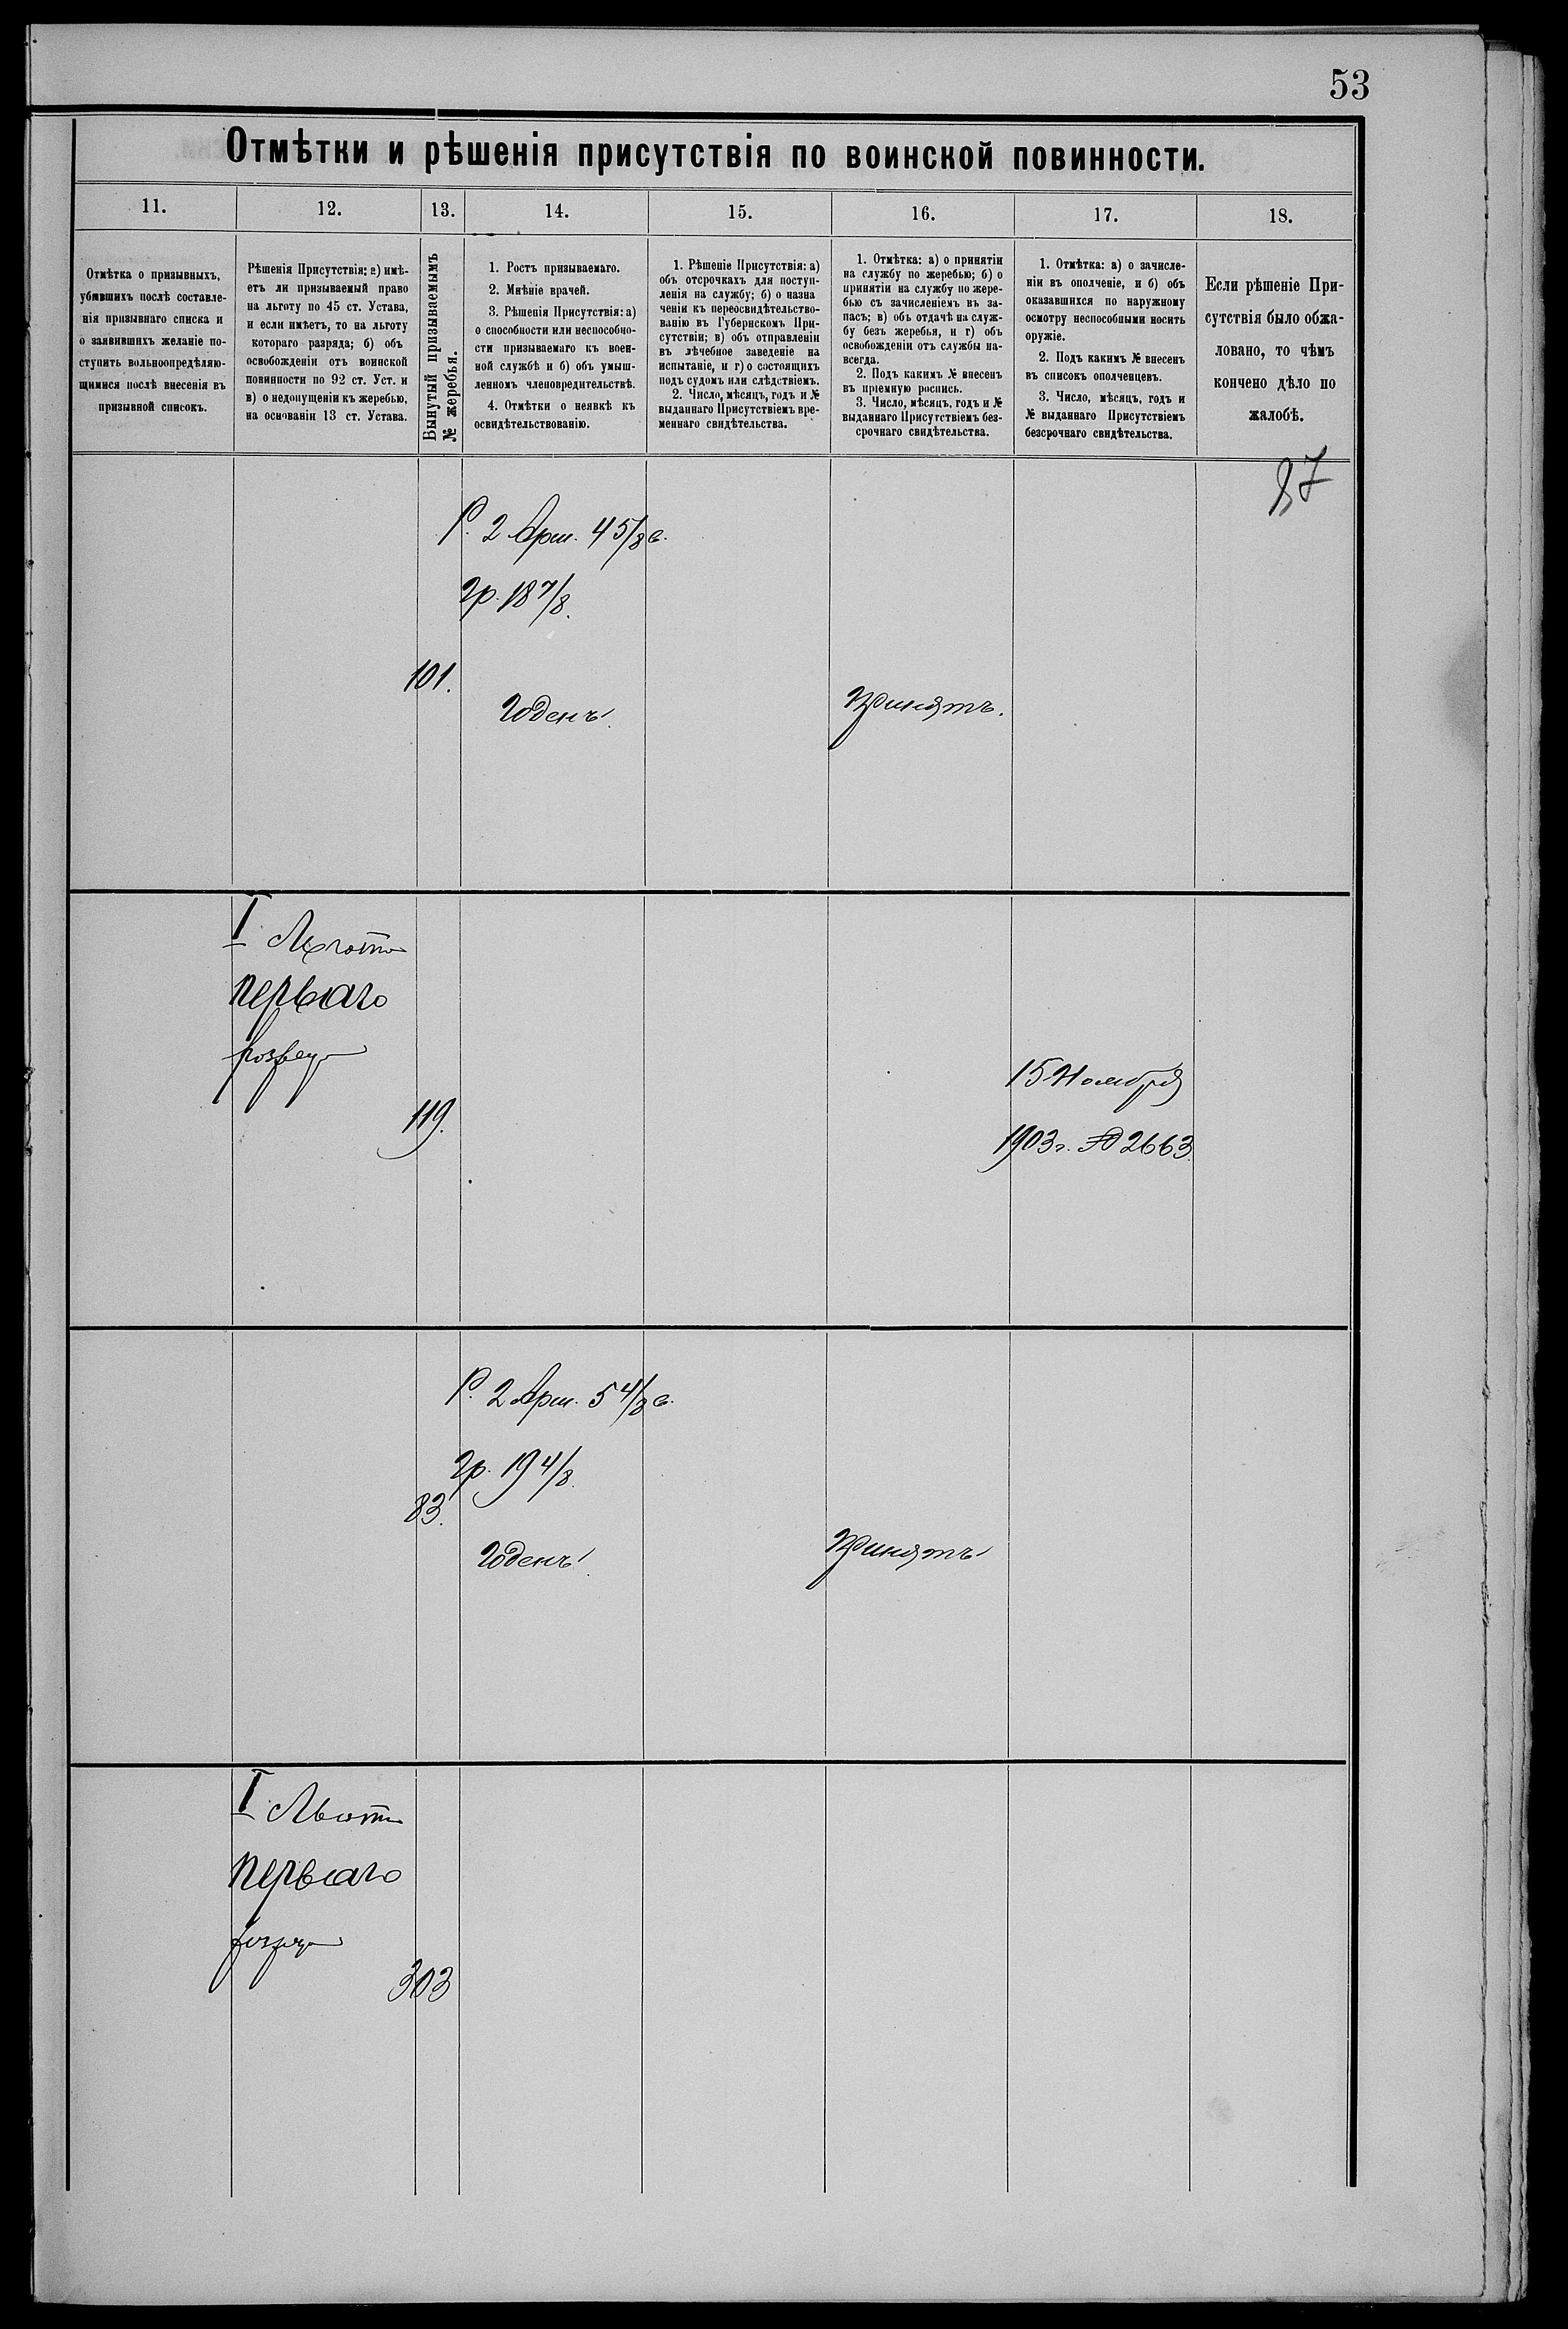 53
Отмѣтки и рѣшенія присутствія по воинской повинности.
11.
12.
13.
14.
15.
16.
17.
18.
Отмѣтка о призывныхъ,
убывшихъ послѣ составле-
нія призывнаго списка и
о заявившихъ желаніе по-
ступить вольноопредѣляю-
щимися послѣ внесенія въ
призывной списокъ.
Рѣшенія Присутствія: а) имѣ-
етъ ли призываемый право
на льготу по 45 ст. Устава,
и если имѣетъ, то на льготу
котораго разряда; б) объ
освобожденіи отъ воинской
повинности по 92 ст. Уст. и
в) о недопущеніи къ жеребью,
на основаніи 13 ст. Устава.
Вынутый призываемымъ
№ жеребья.
1. Ростъ призываемаго.
2. Мнѣніе врачей.
3. Рѣшенія Присутствія: а)
о способности или неспособно-
сти призываемаго къ воен-
ной службѣ и б) объ умыш-
ленномъ членовредительствѣ.
4. Отмѣтки о неявкѣ къ
освидѣтельствованію.
1. Рѣшеніе Присутствія: а)
объ отсрочкахъ для поступ-
ленія на службу; б) о назна
ченіи къ переосвидѣтельство-
ванію въ Губернскомъ При-
сутствіи; в) объ отправленіи
въ лѣчебное заведеніе на
испытаніе, и г) о состоящихъ
подъ судомъ или слѣдствіемъ.
2. Число, мѣсяцъ, годъ и №
выданнаго Присутствіемъ вре-
меннаго свидѣтельства.
1. Отмѣтка: а) о принятіи
на службу по жеребью; б) о
принятіи на службу по жере-
бью съ зачисленіемъ въ за-
пасъ; в) объ отдачѣ на служ-
бу безъ жеребья, и г) объ
освобожденіи отъ службы на-
всегда.
2. Подъ какимъ № внесенъ
въ пріемную роспись.
3. Число, мѣсяцъ, годъ и №
выданнаго Присутствіемъ без-
срочнаго свидѣтельства.
1. Отмѣтка: а) о зачисле-
ніи въ ополченіе, и б) объ
оказавшихся по наружному
осмотру неспособными носить
оружіе.
2. Подъ какимъ № внесенъ
въ списокъ ополченцевъ.
3. Число, мѣсяцъ, годъ и
№ выданнаго Присутствіемъ
безсрочнаго свидѣтельства.
Если рѣшеніе При-
сутствія было обжа-
ловано, то чѣмъ
кончено дѣло по
жалобѣ.
87
Р. 2 Арш. 4 5/8 в.
Гр. 18 7/8.
101.
Годенъ.
Принятъ.
I Льгота
перваго
разряда
119.
15 Ноября
1903 г. № 2663.
Р. 2 Арш. 5 4/8 в.
Гр. 19 4/8.
83.
Годенъ.
Принятъ
I Льгота
перваго
разряда
303